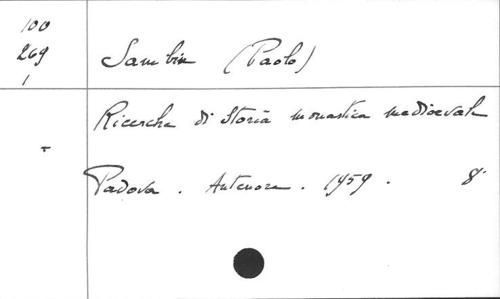 100
269
1
Sambin (Paolo)
Ricerche di Storia monastica medioevale
Padova. Antenore. 1959. 8°